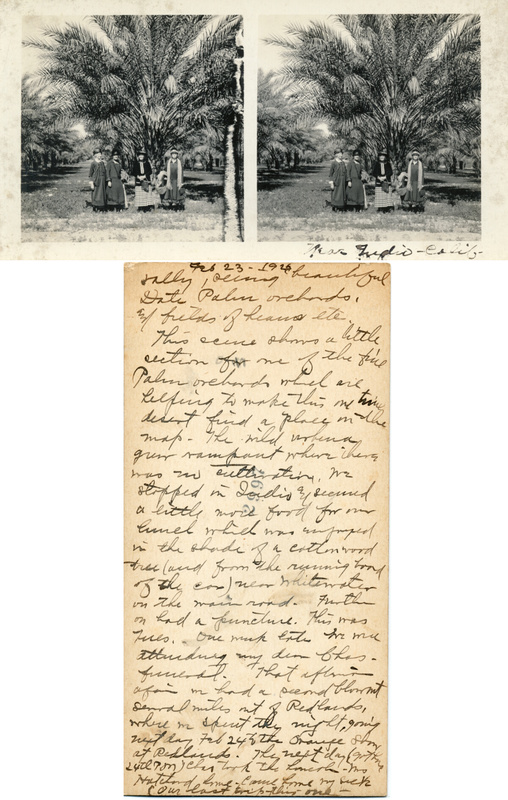 Near Indio - Calif.
Feb 23 - 19
seeing beautiful
Date Palm orchards,
& fields of beans etc.
This scene shows a little
section of one of the fine
Palm orchards which are
helping to make this one time
desert find a place on the
map - The wild verbena
grew rampant where there
was no cultivation. We
stopped in Indio & secured
a little more food for our
lunch which was enjoyed
in the shade of a cottonwood
tree (and from the running board
of the car) near Whitewater
on the main road - Further
on had a puncture. This was
Tues. - One week later we were
attending my dear Chas-
funeral. That after
again we had a second blowout
several miles out of Redlands,
where we spent the night, going
next day Feb 24 to the Orange Show
at Redlands. The next day
24th P.M.) Chas took the Lincoln - Mrs
home - Came home
(Our last trip this one -